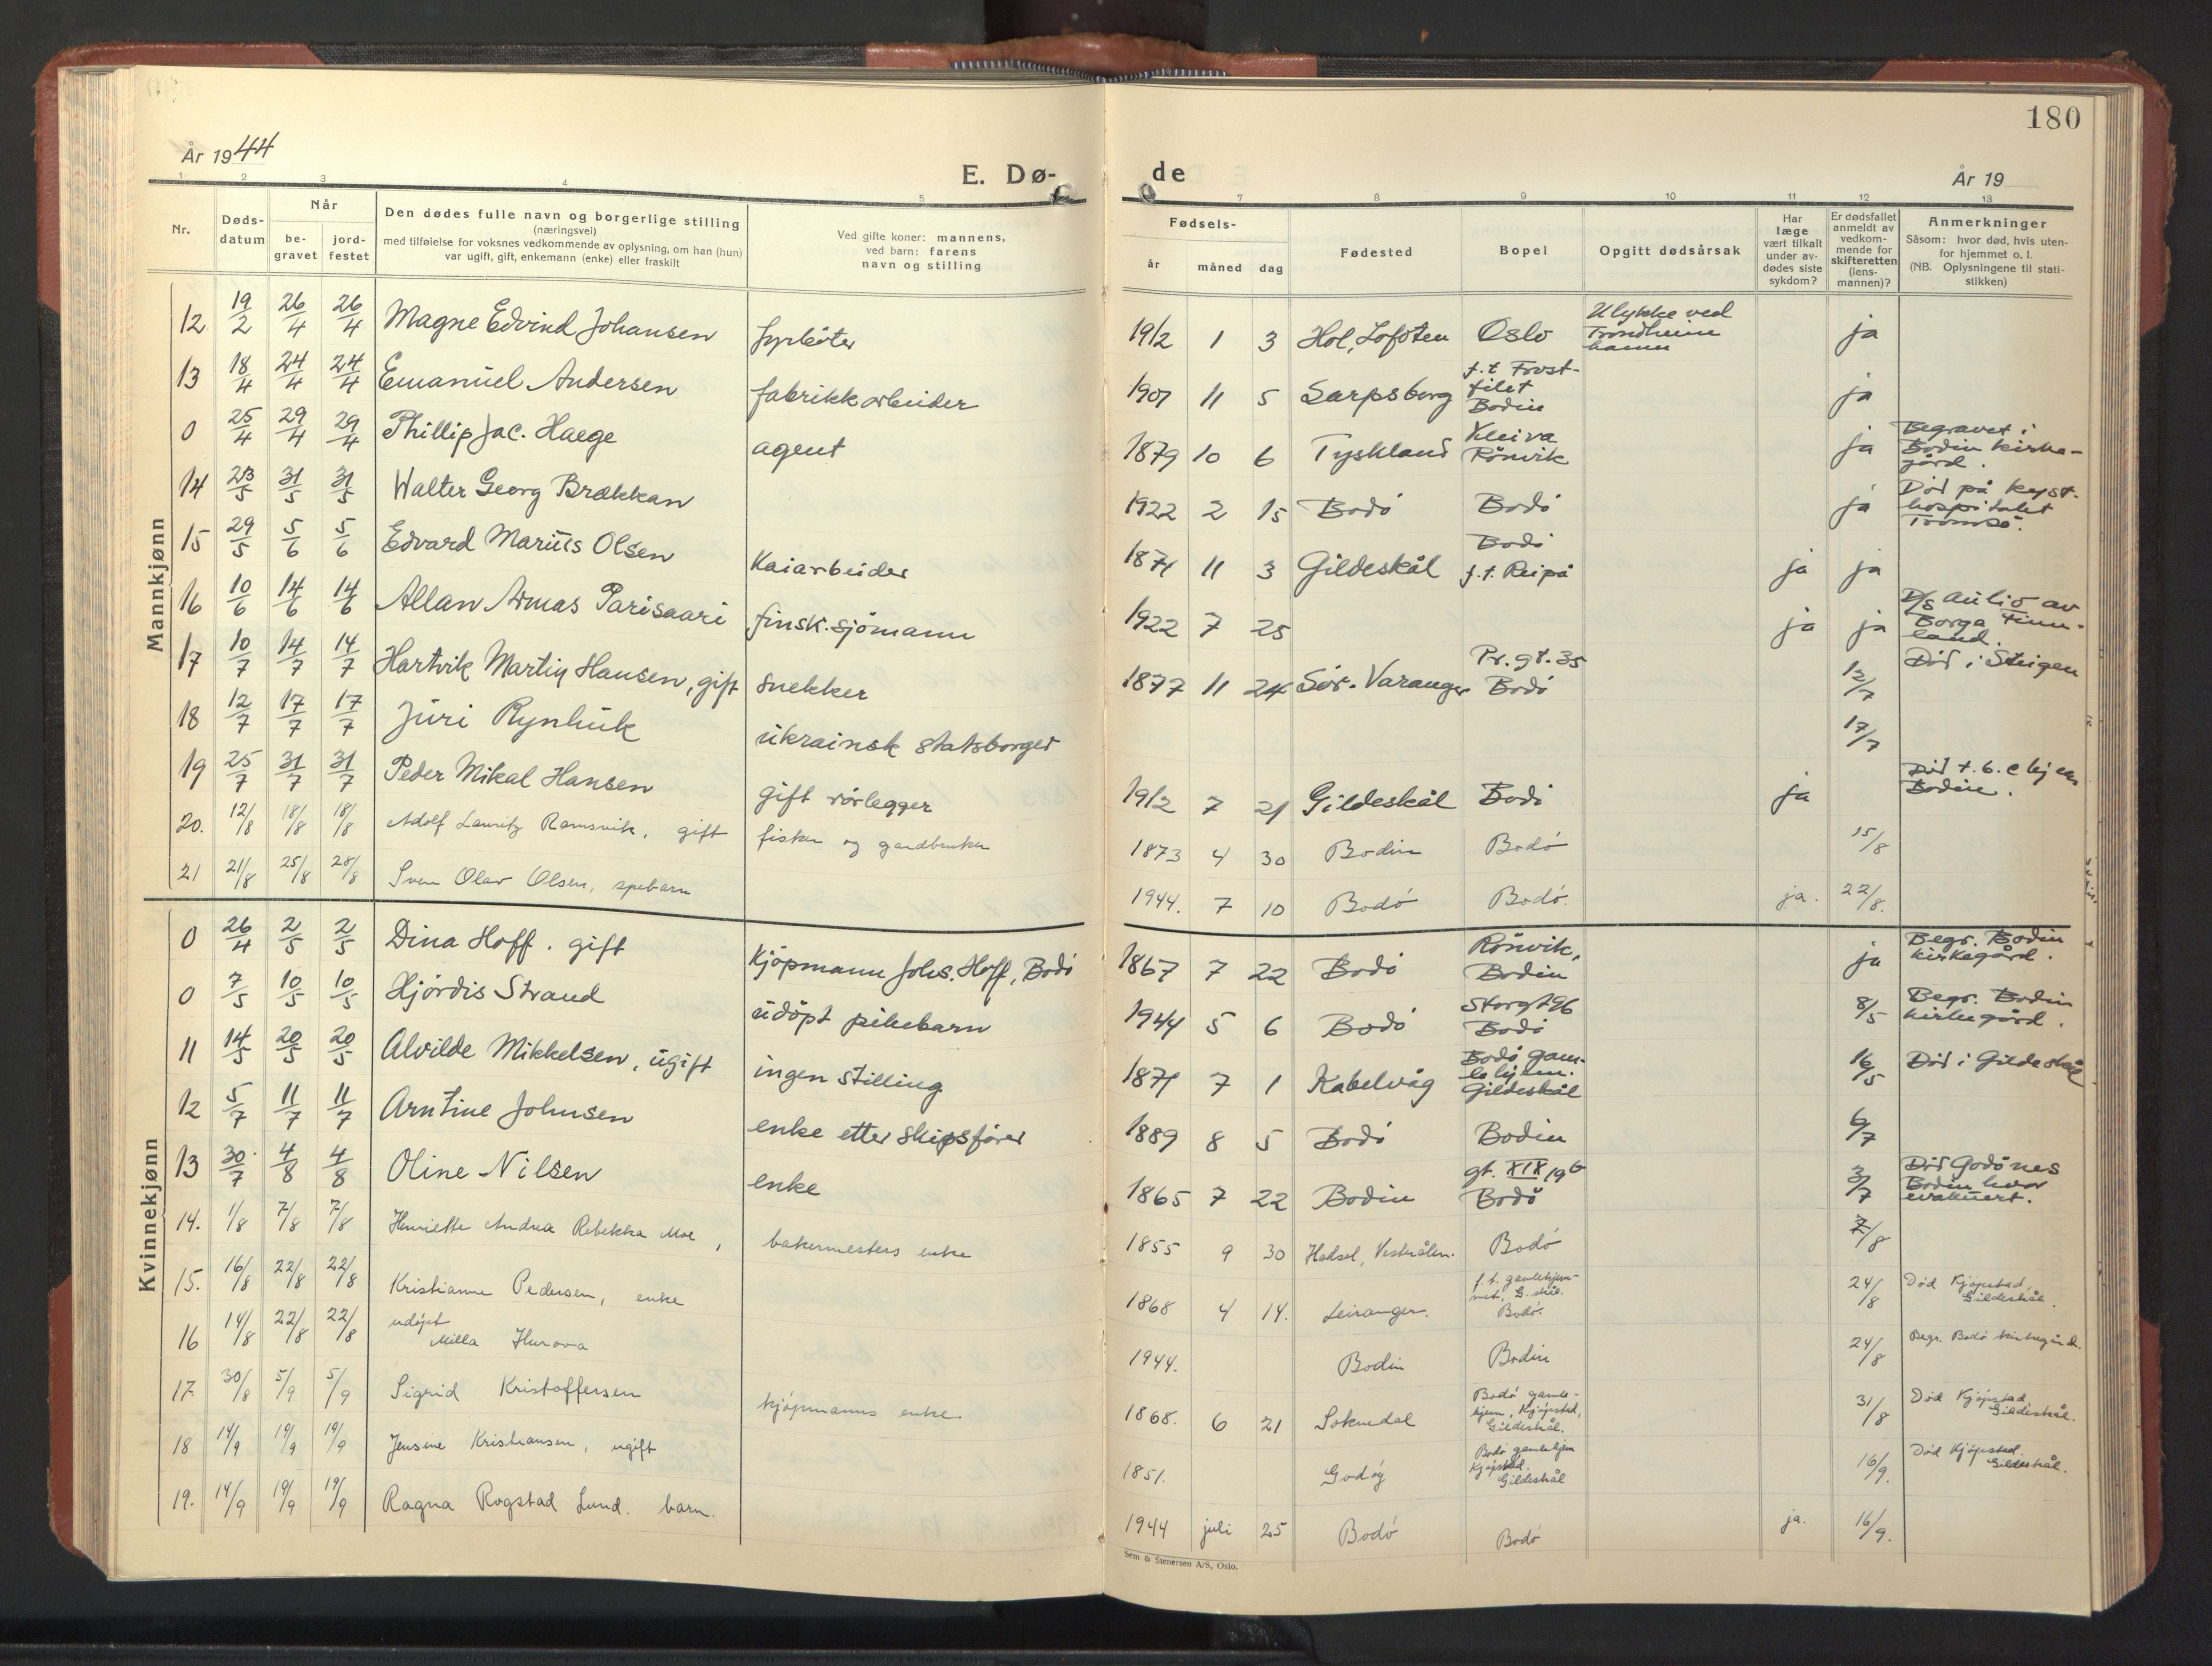 180
År 1944
E. Dø-
de
År 19
1 2 3 4 5 7 8 9 10 11 12 13
Nr.
Døds-
datum
Når
be-
gravet
jord-
festet
Den dødes fulle navn og borgerlige stilling
(næringsvei)
med tilføielse for voksnes vedkommende av oplysning, om han (hun)
var ugift, gift, enkemann (enke) eller fraskilt
Ved gifte koner: mannens,
ved barn: farens
navn og stilling
Fødsels-
år måned dag
Fødested
Bopel
Opgitt dødsårsak
Har
læge
vært tilkalt
under av-
dødes siste
sykdom?
Er dødsfallet
anmeldt av
vedkom-
mende for
skifteretten
(lens-
mannen)?
Anmerkninger
Såsom: hvor død, hvis uten-
for hjemmet o. l.
(NB. Oplysningene til stati-
stikken)
Mannkjønn
12 19/2 26/4 26/4 Magne Edvind Johansen fyrbøter 1912 1 3 Hol, Lofoten Oslo Ulykke ved Trondheim havn ja
13 18/4 24/4 24/4 Emanuel Andersen fabrikkarbeider 1907 11 5 Sarpsborg f.t Frost-filet Bodin ja
0 25/4 29/4 29/4 Phillip Jac. Haege agent 1879 10 6 Tyskland Kleiva Rönvik ja Begravet i Bodin kirke-gård.
14 23/5 31/5 31/5 Walter Georg Brækkan 1922 2 15 Bodö Bodö ja Död på kyst-hospitalet Tromsö.
15 29/5 5/6 5/6 Edvard Marius Olsen Kaiarbeider 1871 11 3 Gildeskål Bodö f.t. Reipå ja ja
16 10/6 14/6 14/6 Allan Armas Parisaari finsk. sjömann 1922 7 25 ja ja D/S Aulio av Borga Finn-land.
17 10/7 14/7 14/7 Hartvik Martin Hansen, gift snekker 1877 11 24 Sör-Varanger Pr.gt.35 Bodö 12/7 Död i Steigen
18 12/7 17/7 17/7 Juri Rynhuk ukrainsk statsborger 17/7
19 25/7 31/7 31/7 Peder Mikal Hansen gift rörlegger 1912 7 21 Gildeskål Bodö ja Död t.b.c hjem Bodin.
20. 12/8 18/8 18/8 Adolf Lauritz Ramsvik, gift fisker og gardbruker 1873 4 30 Bodin Bodö 15/8
21 21/8 25/8 28/8 Sven Olav Olsen, spebarn 1944. 7 10 Bodö Bodö. ja. 22/8.
Kvinnekjønn
0 26/4 2/5 2/5 Dina Hoff. gift Kjöpmann Johs. Hoff, Bodö 1867 7 22 Bodö Rönvik, Bodin ja Begr. Bodin kirkegård.
0 7/5 10/5 10/5 Hjördis Strand udöpt pikebarn 1944 5 6 Bodö Storgt 96 Bodö 8/5 Begr. Bodin kirkegård.
11 14/5 20/5 20/5 Alvilde Mikkelsen, ugift ingen stilling 1871 7 1 Kabelvåg Bodö gam-lehjem. Gildeskål 16/5 Död i Gildeskål
12 5/7 11/7 11/7 Arntine Johnsen enke etter skipsförer 1889 8 5 Bodö Bodin 6/7
13 30/7 4/8 4/8 Oline Nilsen enke 1865 7 22 Bodin gt. XIX 19b Bodö 3/7 Död Godönes Bodin hvor evakuert.
14. 1/8 7/8 7/8 Henriette Andrea Rebekka Moe, bakermesters enke 1855 9 30 Hadsel, Vesterålen. Bodö 7/8
15. 16/8 22/8 22/8 Kristianne Pedersen, enke 1868 4 14. Leiranger. f.t. gamlehjem-met, G.skål. Bodö. 24/8 Död Kjöpstad, Gildeskål.
16 14/8 22/8 22/8 udöpt Milla Hurova 1944. Bodin Bodin 24/8 Begr. Bodö kirkegård.
17. 30/8 5/9 5/9 Sigrid Kristoffersen kjöpmanns enke 1868. 6 21 Soknedal Bodö gamle-hjem, Kjöpstad, Gildeskål. 31/8 Död Kjöpstad, Gildeskål.
18 14/9 19/9 19/9 Jensine Kristiansen, ugift 1851. Godöy Bodö gamlehjem Kjöpstad. Gildeskål 16/9. Död Kjöpstad. Gildeskål.
19. 14/9 19/9 19/9 Ragna Rogstad Lund. barn. 1944 juli 25 Bodö Bodö ja. 16/9.
Sem & Stenersen A/S, Oslo.